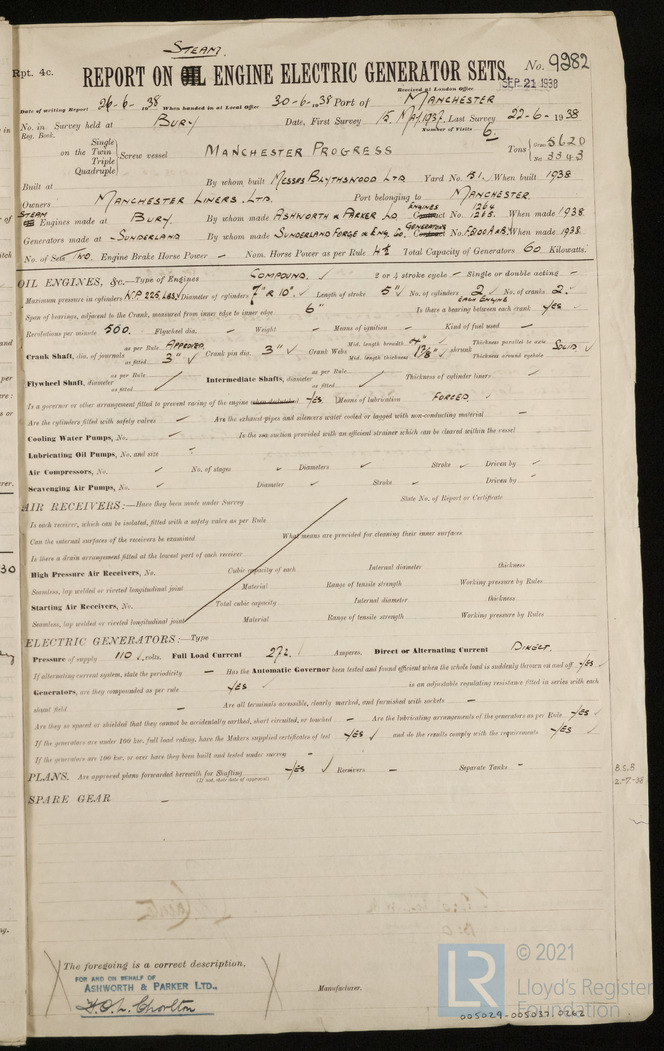 STEAM.
Rpt. 4c.
REPORT ON OIL ENGINE ELECTRIC GENERATOR SETS.
No. 9282
Received at London Office
SEP 21 1938
Date of writing Report 26-6-1938 When handed in at Local Office 30-6-1938 Port of MANCHESTER
No. in Survey held at BURY Date, First Survey 15 1937 Last Survey 22-6-1938
Reg. Book. Number of Visits 6.
Single
on the Twin
Triple
Quadruple
Screw vessel MANCHESTER PROGRESS
Tons Gross 5620
Net 3343
Built at By whom built MESSRS BLYTHSWOOD LTD Yard No. 151. When built 1938
Owners MANCHESTER LINERS. LTD. Port belonging to MANCHESTER.
STEAM Engines made at BURY. By whom made ASHWORTH & PARKER LD ENGINES Contract No. 1264 1265. When made 1938
Generators made at SUNDERLAND By whom made SUNDERLAND FORGE & ENG. Co. GENERATORS Contract No. When made 1938
No. of Sets TWO. Engine Brake Horse Power – Nom. Horse Power as per Rule Total Capacity of Generators 60 Kilowatts.
OIL ENGINES, &c.—Type of Engines COMPOUND. 2 or 4 stroke cycle – Single or double acting –
Maximum pressure in cylinders W.P 225 LBS Diameter of cylinders 7" & 10" Length of stroke 5" No. of cylinders 2 EACH ENGINE No. of cranks 2.
Span of bearings, adjacent to the Crank, measured from inner edge to inner edge 6" Is there a bearing between each crank YES
Revolutions per minute 500. Flywheel dia. – Weight – Means of ignition – Kind of fuel used –
Crank Shaft, dia. of journals as per Rule APPROVED. as fitted 3" Crank pin dia. 3" Crank Webs Mid. length breadth 4" Mid. length thickness shrunk Thickness parallel to axis SOLID. Thickness around eyehole
Flywheel Shaft, diameter as per Rule as fitted Intermediate Shafts, diameter as per Rule as fitted Thickness of cylinder liners
Is a governor or other arrangement fitted to prevent racing of the engine when declutched YES Means of lubrication FORCED.
Are the cylinders fitted with safety valves Are the exhaust pipes and silencers water cooled or lagged with non-conducting material –
Cooling Water Pumps, No. – Is the sea suction provided with an efficient strainer which can be cleared within the vessel
Lubricating Oil Pumps, No. and size
Air Compressors, No. No. of stages Diameters Stroke Driven by
Scavenging Air Pumps, No. Diameter Stroke Driven by
AIR RECEIVERS:—Have they been made under Survey State No. of Report or Certificate
Is each receiver, which can be isolated, fitted with a safety valve as per Rule
Can the internal surfaces of the receivers be examined What means are provided for cleaning their inner surfaces
Is there a drain arrangement fitted at the lowest part of each receiver
High Pressure Air Receivers, No. Cubic capacity of each Internal diameter thickness
Seamless, lap welded or riveted longitudinal joint Material Range of tensile strength Working pressure by Rules
Starting Air Receivers, No. Total cubic capacity Internal diameter thickness
Seamless, lap welded or riveted longitudinal joint Material Range of tensile strength Working pressure by Rules
ELECTRIC GENERATORS:—Type
Pressure of supply 110 volts. Full Load Current 272. Amperes. Direct or Alternating Current DIRECT.
If alternating current system, state the periodicity – Has the Automatic Governor been tested and found efficient when the whole load is suddenly thrown on and off YES
Generators, are they compounded as per rule YES is an adjustable regulating resistance fitted in series with each
shunt field – Are all terminals accessible, clearly marked, and furnished with sockets –
Are they so spaced or shielded that they cannot be accidentally earthed, short circuited, or touched – Are the lubricating arrangements of the generators as per Rule YES
If the generators are under 100 kw. full load rating, have the Makers supplied certificates of test YES and do the results comply with the requirements YES
If the generators are 100 kw. or over have they been built and tested under survey –
PLANS. Are approved plans forwarded herewith for Shafting YES Receivers – Separate Tanks –
(If not, state date of approval)
B.S.B
2-7-38
SPARE GEAR –
The foregoing is a correct description,
FOR AND ON BEHALF OF
ASHWORTH & PARKER LTD.,
Manufacturer.
© 2021
LR
Lloyd's Register
Foundation
005029-005037-0262